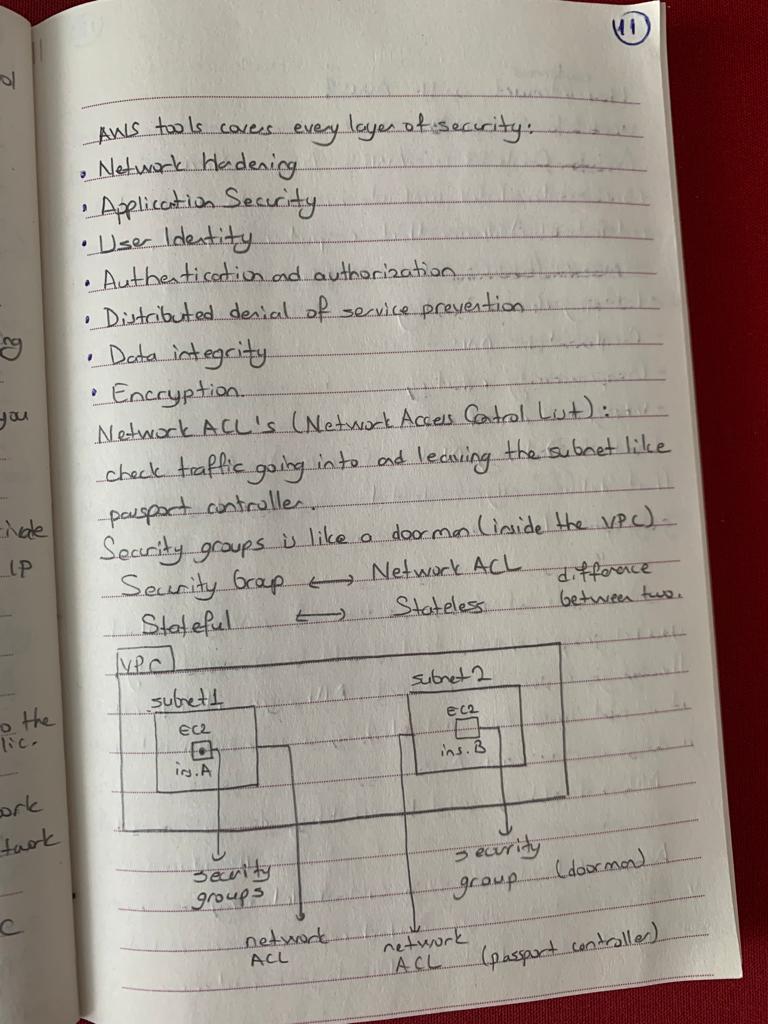 11
AWS tools covers every layer of security:
• Network Hadening
• Application Security
• User Identity
• Authentication ad authorization
• Distributed denial of service prevention
• Data integrity
• Encryption.
Network ACL's (Network Access Control List):
check traffic going into ad leaving the subnet like
passport controller.
Security groups is like a doorman (inside the VPC)
Security Group ↔ Network ACL difference
Stateful ↔ Stateless between two.
VPC
subnet 1
EC2
ins.A
subnet 2
EC2
ins.B
security
groups
network
ACL
security
group (doorman)
network
ACL (passport controller)
ng
you
ivate
IP
o the
lic.
ork
twork
C